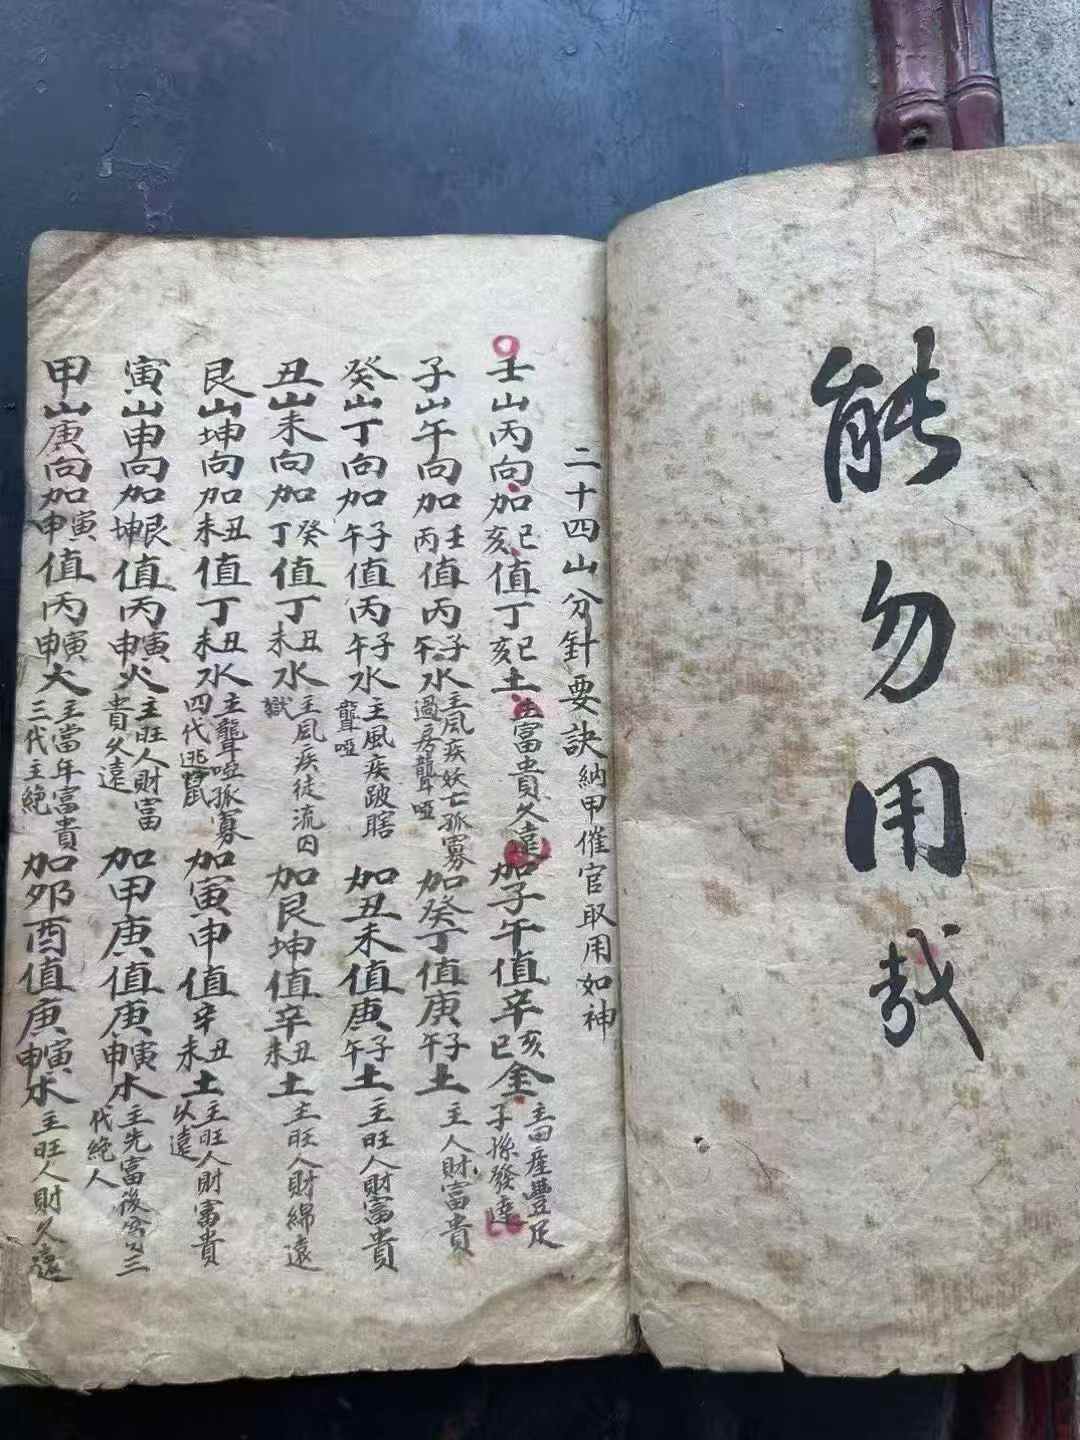 能勿用哉
二十四山分針要訣納甲催官取用如神
壬山丙向加巳亥值丁巳亥土主富貴久遠加子午值辛亥巳金主田產豐足子孫發達
子山午向加壬丙值丙子午水主風疾妖亡孤寡過房聾啞加癸丁值庚子午土主人財富貴
癸山丁向加子午值丙子午水主風疾跛瞎聾啞加丑未值庚子午土主旺人財富貴
丑山未向加癸丁值丁丑未水主風疾徒流囚獄加艮坤值辛丑未土主旺人財綿遠
艮山坤向加丑未值丁丑未水主聾啞孤寡四代逃竄加寅申值辛丑未土主旺人財富貴以遠
寅山申向加艮坤值丙寅申火主旺人財富貴久遠加甲庚值庚寅申木主先富後窮三代絶人
甲山庚向加寅申值丙寅申火主當年富貴三代主絶加夘酉值庚寅申木主旺人財久遠